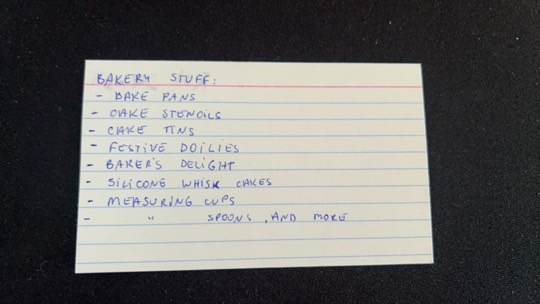 BAKERY STUFF:
- BAKE PANS
- CAKE STENCILS
- CAKE TINS
- FESTIVE DOILIES
- BAKER'S DELIGHT
- SILICONE WHISK CAKES
- MEASURING CUPS
- " SPOONS, AND MORE